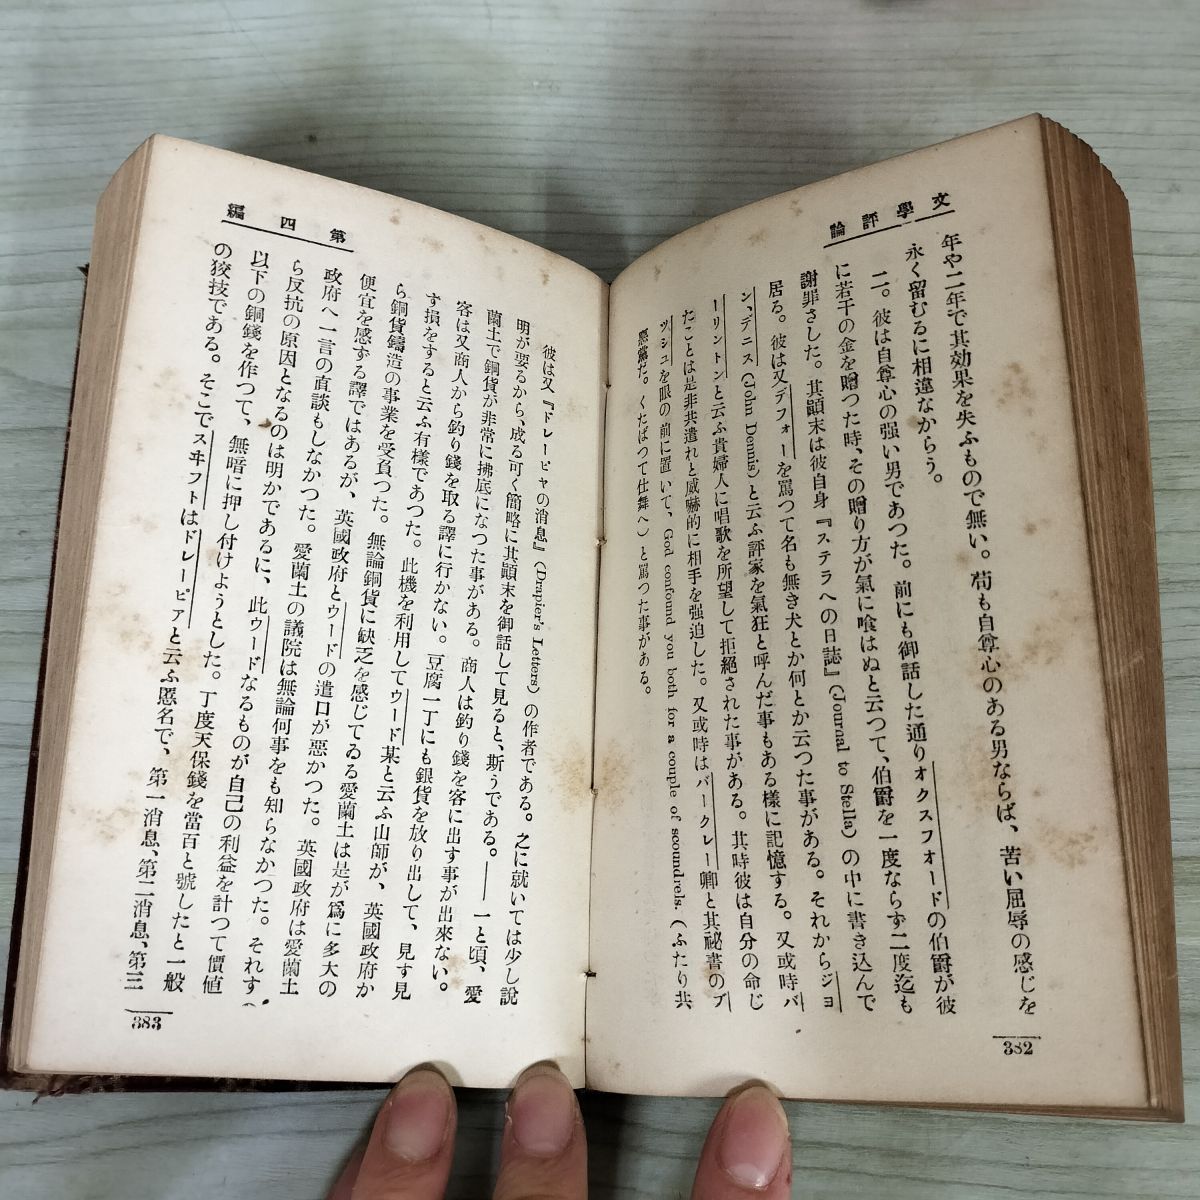 文學評論
年や二年で其効果を失ふもので無い。苟も自尊心のある男ならば、苦い屈辱の感じを
永く留むるに相違なからう。
二。彼は自尊心の强い男であつた。前にも御話した通りオクスフォードの伯爵が彼
に若干の金を贈つた時、その贈り方が氣に喰はぬと云つて、伯爵を一度ならず二度迄も
謝罪さした。其顚末は彼自身『ステラへの日誌』(Journal to Stella) の中に書き込んで
居る。彼は又デフォーを罵つて名も無き犬とか何とか云つた事がある。それからジヨ
ン、デニス (John Dennis) と云ふ評家を氣狂と呼んだ事もある樣に記憶する。又或時バ
ーリントンと云ふ貴婦人に唱歌を所望して拒絕された事がある。其時彼は自分の命じ
たことは是非共遣れと威嚇的に相手を强迫した。又或時はバークレー卿と其祕書のブ
ッシュを眼の前に置いて、God confound you both for a couple of scoundrels. (ふたり共
惡黨だ。くたばつて仕舞へ) と罵つた事がある。
382
第四編
彼は又『ドレーピヤの消息』(Drapier's Letters) の作者である。之に就いては少し說
明が要るから、成る可く簡略に其顚末を御話して見ると、斯うである。——一と頃、愛
蘭土で銅貨が非常に拂底になつた事がある。商人は釣り錢を客に出す事が出來ない。
客は又商人から釣り錢を取る譯に行かない。豆腐一丁にも銀貨を放り出して、見す見
す損をすると云ふ有樣であつた。此機を利用してウード某と云ふ山師が、英國政府か
ら銅貨鑄造の事業を受負つた。無論銅貨に缺乏を感じてゐる愛蘭土は是が爲に多大の
便宜を感ずる譯ではあるが、英國政府とウードの遣口が惡かつた。英國政府は愛蘭土
政府へ一言の直談もしなかつた。愛蘭土の議院は無論何事をも知らなかつた。それす
ら反抗の原因となるのは明かであるに、此ウードなるものが自己の利益を計つて價値
以下の銅錢を作つて、無暗に押し付けようとした。丁度天保錢を當百と號したと一般
の狡技である。そこでスヰフトはドレーピアと云ふ匿名で、第一消息、第二消息、第三
383